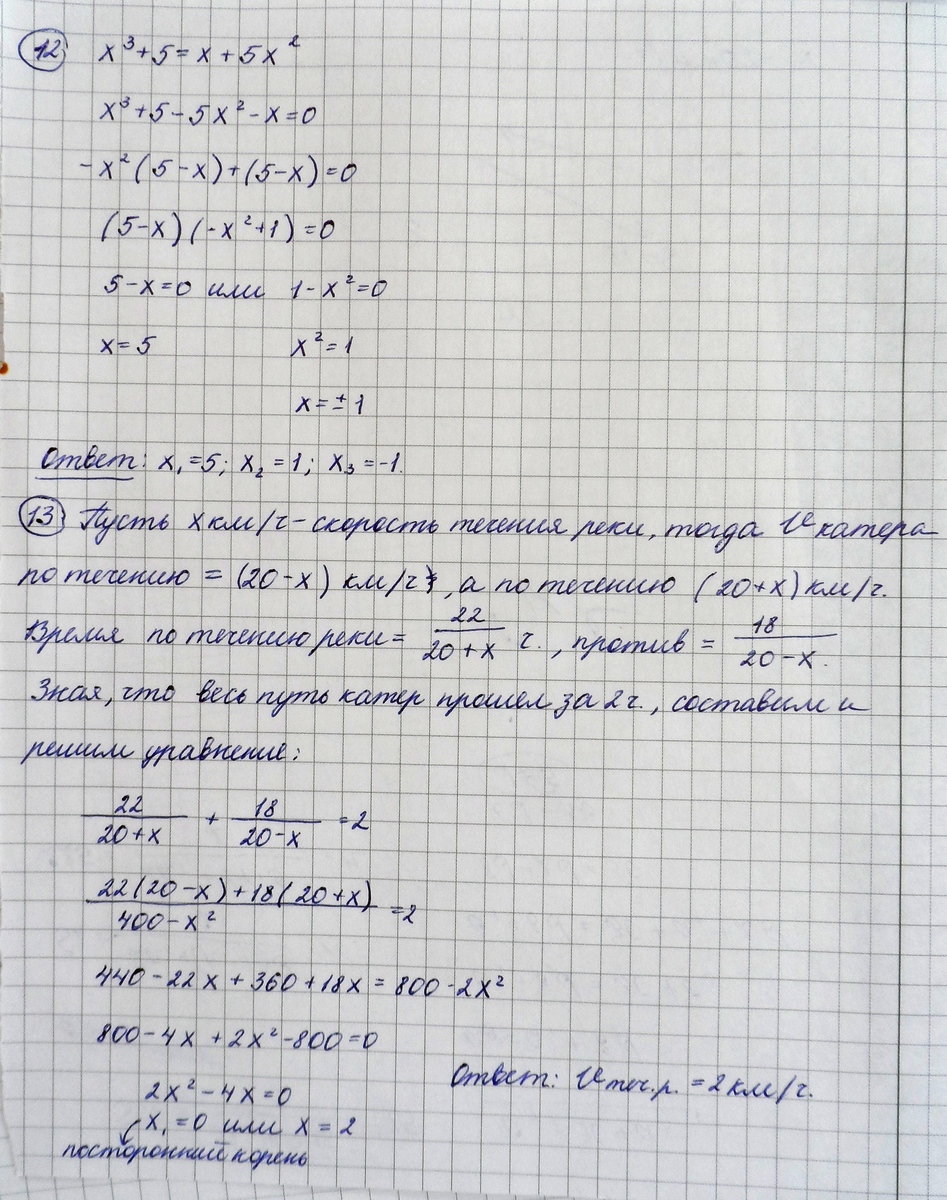 12 x³+5=x+5x²
x³+5-5x²-x=0
-x²(5-x)+(5-x)=0
(5-x)(-x²+1)=0
5-x=0 или 1-x²=0
x=5 x²=1
x=±1
Ответ: x₁=5; x₂=1; x₃=-1.
13 Пусть x км/ч-скорость течения реки, тогда V катера
по течению = (20-x) км/ч, а по течению (20+x) км/ч.
Время по течению реки = 22/20+x ч., против = 18/20-x.
Зная, что весь путь катер прошел за 2 ч., составим и
решим уравнение:
22/20+x + 18/20-x =2
22(20-x)+18(20+x)/400-x² =2
440-22x+360+18x=800-2x²
800-4x+2x²-800=0
2x²-4x=0
Ответ: V теч.р. =2 км/ч.
x₁=0 или x=2
посторонний корень